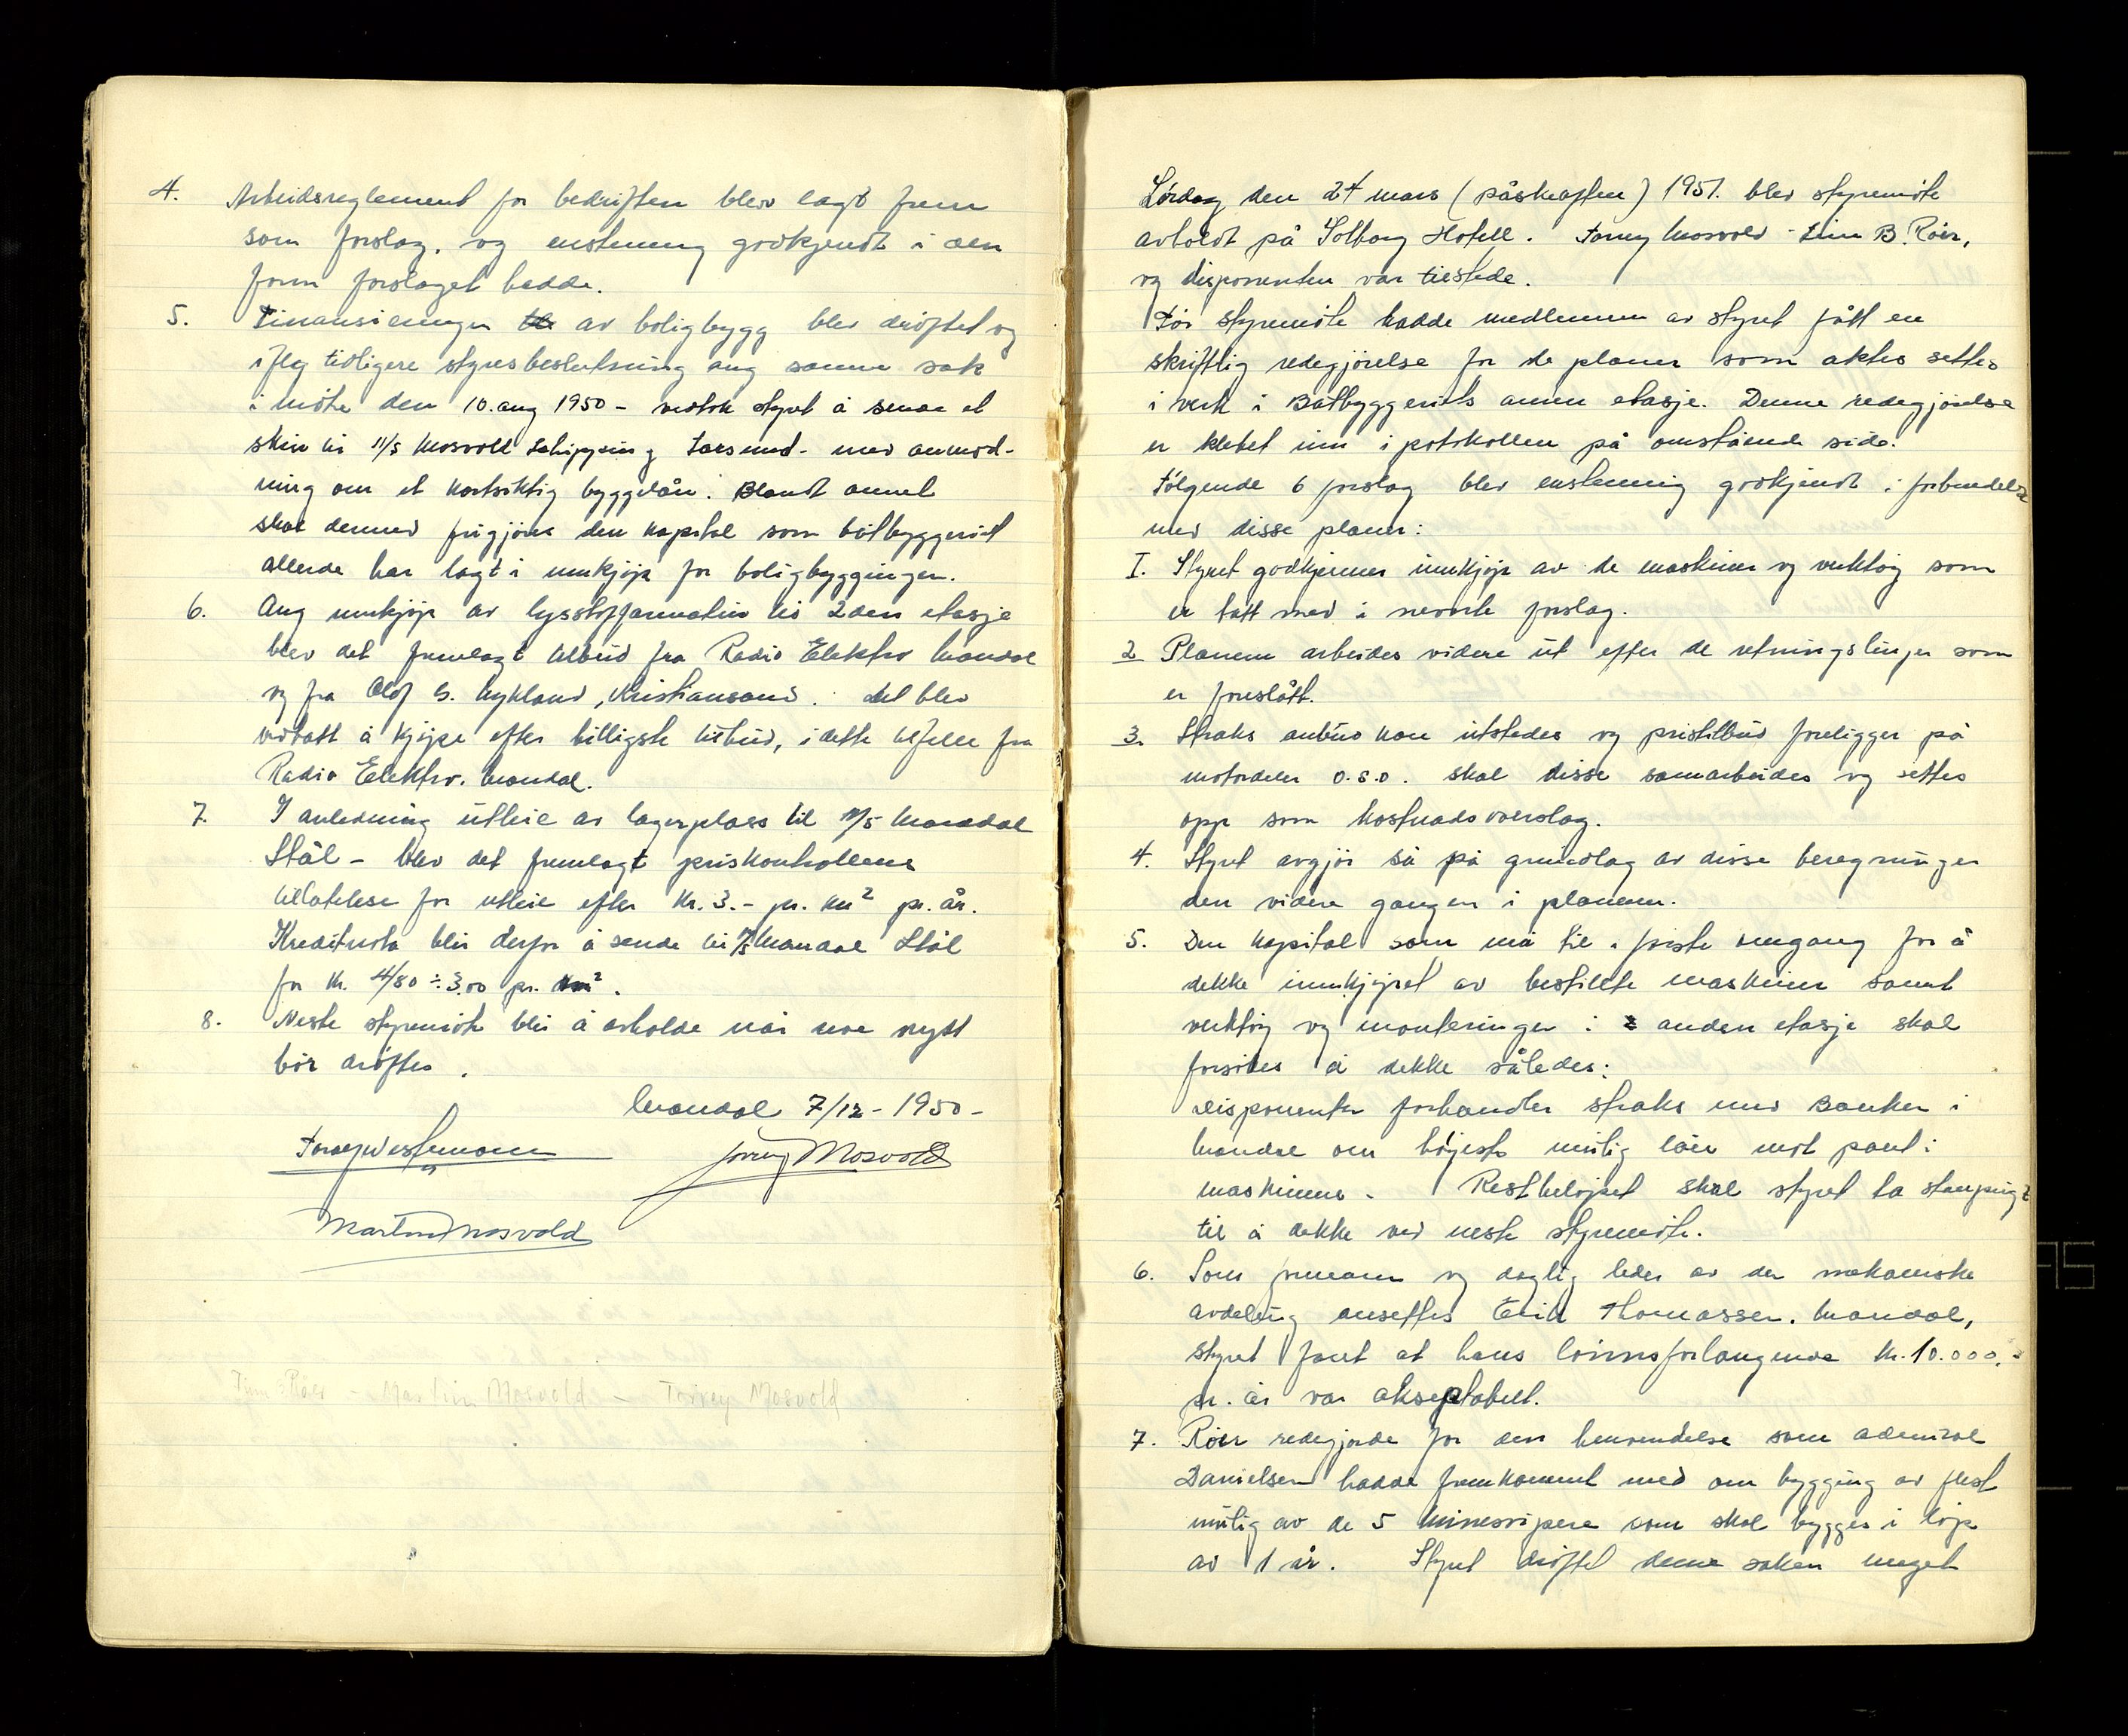 4. Arbeidsreglement for bedriften blev lagt frem
som forslag, og enstemmig godkjendt i den
form forslaget hadde.
5. Finansieringen av boligbygg blev drøftet og
iflg tidligere styresbeslutning ang samme sak
i møte den 10. aug 1950 - vedtok styret å sende et
skriv til A/S Mosvold Schipping Farsund - med anmod-
ning om et kortsiktig byggelån. Blandt annet
skal dermed frigjøres den kapital som båtbyggeriet
allerde har lagt i innkjøp for boligbyggingen.
6. Ang innkjøp av lysstoffarmatur til 2den etasje
blev det fremlagt tilbud fra Radio Elektro Mandal
og fra Olof S. Nykland, Kristiansand. det blev
vedtatt å kjøpe efter billigste tilbud, i dette tilfelle fra
Radio Elektro. Mandal.
7. I anledning utleie av lagerplass til A/S Mandal
Stål - blev det fremlagt priskontrollens
tillatelse for utleie efter kr. 3.- pr. m² pr. år.
Kreditnota blir derfor å sende til A/S Mandal Stål
for kr. 4/80 ÷ 3.00 pr. m².
8. Neste styremøte blir å avholde når noe nytt
bør drøftes.
Mandal 7/12 - 1950 -
Torrey Mosvold
Martin Mosvold
Finn B Røer - Martin Mosvold - Torrey Mosvold
Lørdag den 24 mars (påskeaften) 1951. blev styremøte
avholdt på Solborg Hotell. Torrey Mosvold - Finn B. Röer,
og disponenten var tilstede.
Før styremøte hadde medlemmer av styret fått en
skriftlig redegjørelse for de planer som aktes settes
i verk i Båtbyggeriets annen etasje. Denne redegjørelse
er klebet inn i protokollen på omstående side.
Følgende 6 forslag blev enstemmig godkjendt i forbindelse
med disse planer:
I. Styret godkjenner innkjøp av de maskiner og verktøy som
er tatt med i nevnte forslag.
2 Planene arbeides videre ut efter de retningslinjer som
er foreslått.
3. Straks anbud kan utstedes og pristilbud foreligger på
motordeler o.s.v. skal disse samarbeides og settes
opp som kostnadsoverslag.
4. Styret avgjør så på grundlag av disse beregninger
den videre gangen i planene.
5. Den kapital som må til i første omgang for å
dekke innkjøpet av bestillte maskiner samt
verktøy og monteringer i anden etasje skal
forsøkes å dekke således:
Disponenten forhandler straks med Banken i
Mandal om høyeste mulig lån mot pant i
maskinene. Restbeløpet skal styret ta standpunkt
til å dekke ved neste styremøte.
6. Som formann og daglig leder av den mekaniske
avdeling ansettes Erik Thomassen. Mandal,
styret fant at hans lønnsforlangende kr. 10.000,-
pr. år var akseptabelt.
7. Röer redegjorde for den henvendelse som admiral
Danielsen hadde fremkommet med om bygging av flest
mulig av de 5 minesvipere som skal bygges i løp
av 1 år. Styret drøftet denne saken meget